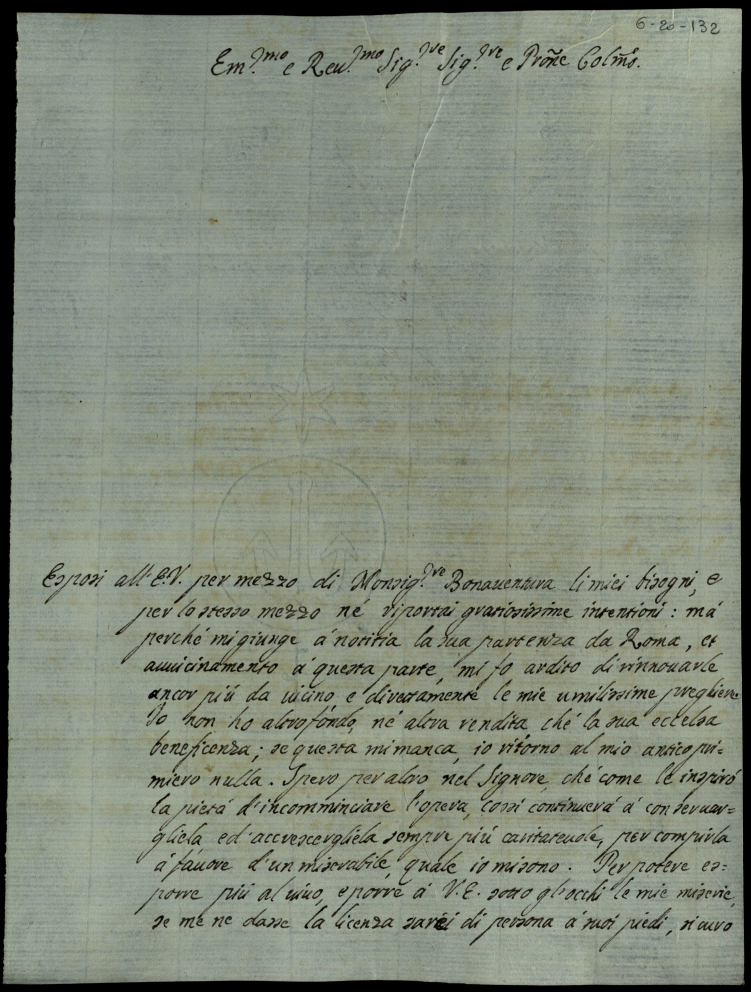 6-20-132
Em.mo e Reu.mo Sig.re Sig.re e Prõne Colmo.
Esposi all'E.V. per mezzo di Monsig.re Bonauentura li miei bisogni, e
per lo stesso mezzo né riportai gratiosissime intentioni: má
perché mi giunge á notitia la sua partenza da Roma, et
auuicinamento á questa parte, mi fo ardito di rinnouarle
ancor piú da uicino e direttamente le mie umilissime preghiere.
Io non ho altro fondo, né altra rendita ché la sua eccelsa
beneficenza; se questa mi manca, io ritorno al mio antico pri-
miero nulla. Spero per altro nel Signore, ché come le inspiró
la pietá d'incomminciare l'opera, cossi continuerá á conseruar-
gliela ed'accrescergliela sempre piú caritateuole, per compirla
á fauore d'un miserabile, quale io mi sono. Per potere es-
porre piú al uiuo, e porre á V.E. sotto gl'occhi le mie miserie,
se me ne dasse la licenza sarei di persona á suoi piedi, sicuro